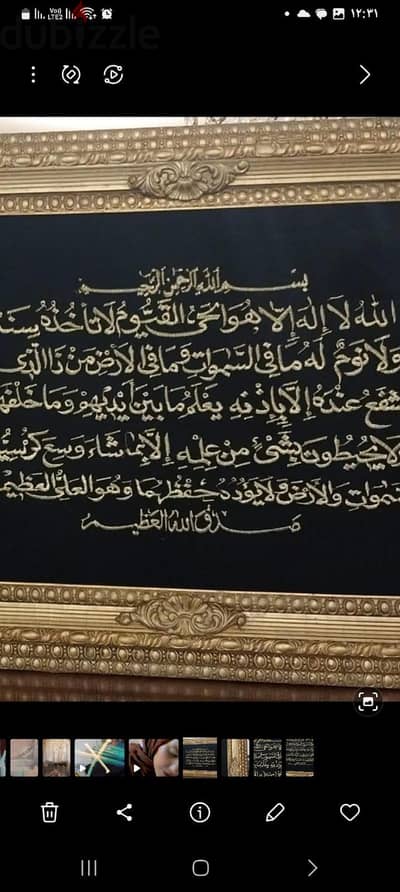 dubizzle
VoB
LTE2
١٢:٣١
بسم الله الرحمن الرحيم
الله لا إله إلا هو الحي القيوم لا تأخذه سنة
ولا نوم له ما في السموات وما في الأرض من ذا الذي
يشفع عنده إلا بإذنه يعلم ما بين أيديهم وما خلفهم
ولا يحيطون بشيء من علمه إلا بما شاء وسع كرسيه
السموات والأرض ولا يؤوده حفظهما وهو العلي العظيم
صدق الله العظيم